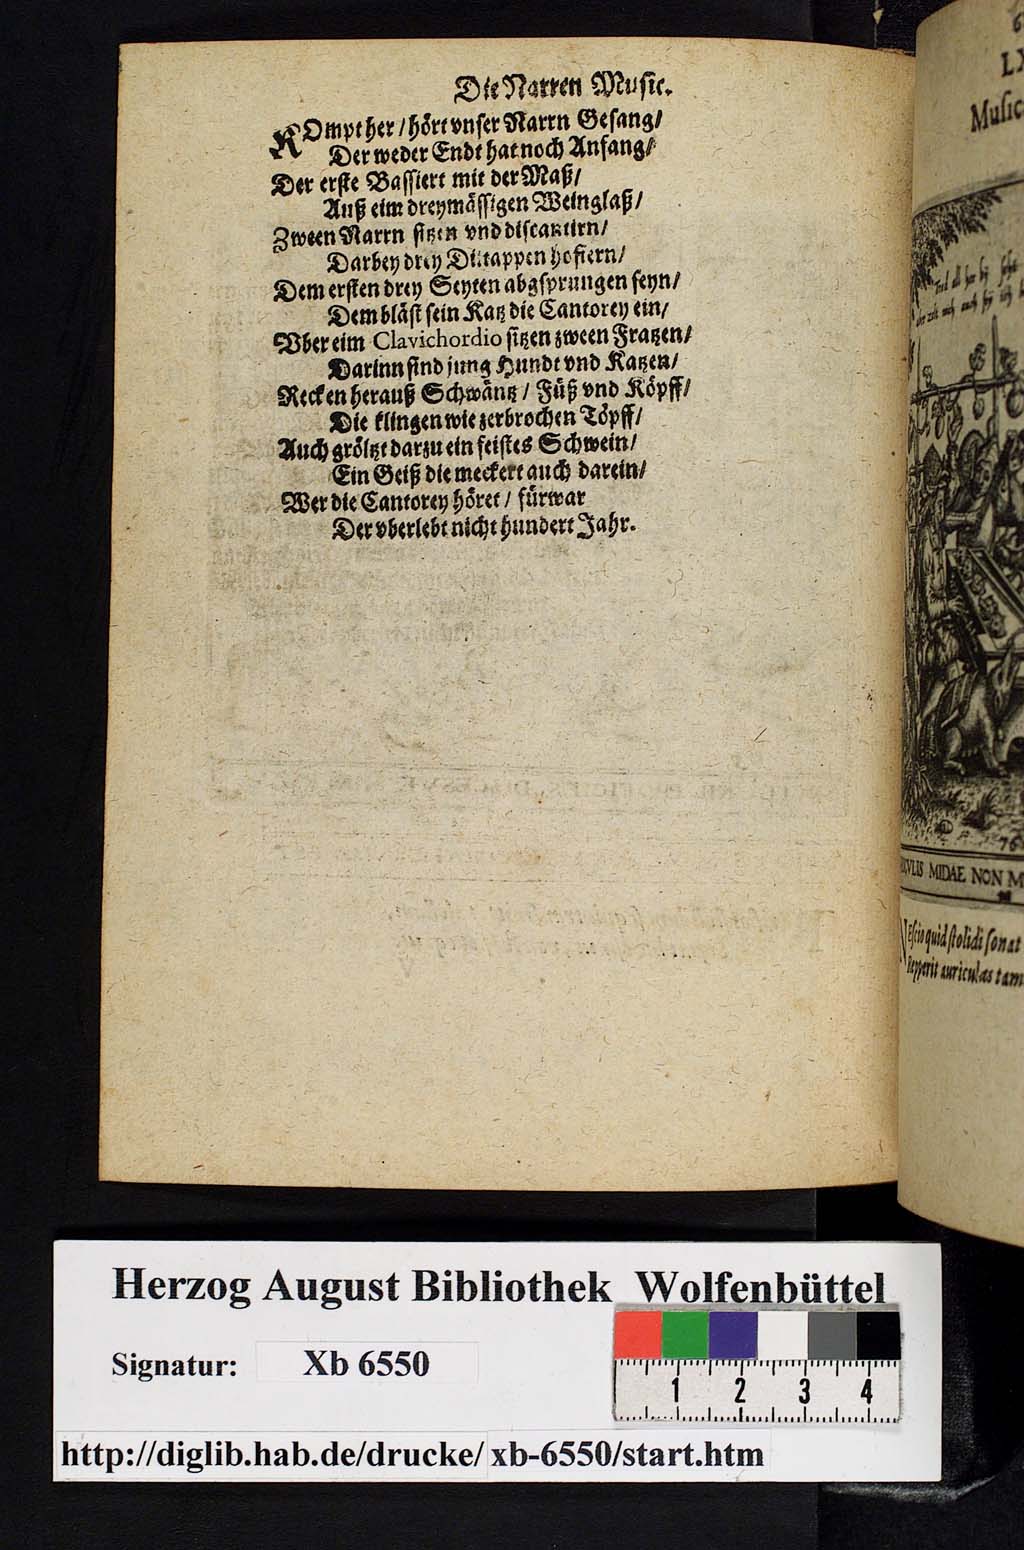 Die Narren Music.
KOmpt her / hört vnser Narrn Gesang /
Der weder Endt hat noch Anfang /
Der erste Bassiert mit der Maß /
Auß eim dreymässigen Weinglaß /
Zween Narrn sitzen vnd discantirn /
Darbey drey Diltappen hofiern /
Dem ersten drey Seyten abgsprungen seyn /
Dem bläst sein Katz die Cantorey ein /
Vber eim Clavichordio sitzen zween Fratzen /
Darinn sind jung Hundt vnd Katzen /
Recken herauß Schwäntz / Füß vnd Köpff /
Die klingen wie zerbrochen Töpff /
Auch gröltzt darzu ein feistes Schwein /
Ein Geiß die meckert auch darein /
Wer die Cantorey höret / fürwar
Der vberlebt nicht hundert Jahr.
Music
VLIS MIDAE NON M
NEscio quid stolidi sonat
Repperit auriculas tam
Herzog August Bibliothek Wolfenbüttel
Signatur: Xb 6550
1 2 3 4
http://diglib.hab.de/drucke/ xb-6550/start.htm